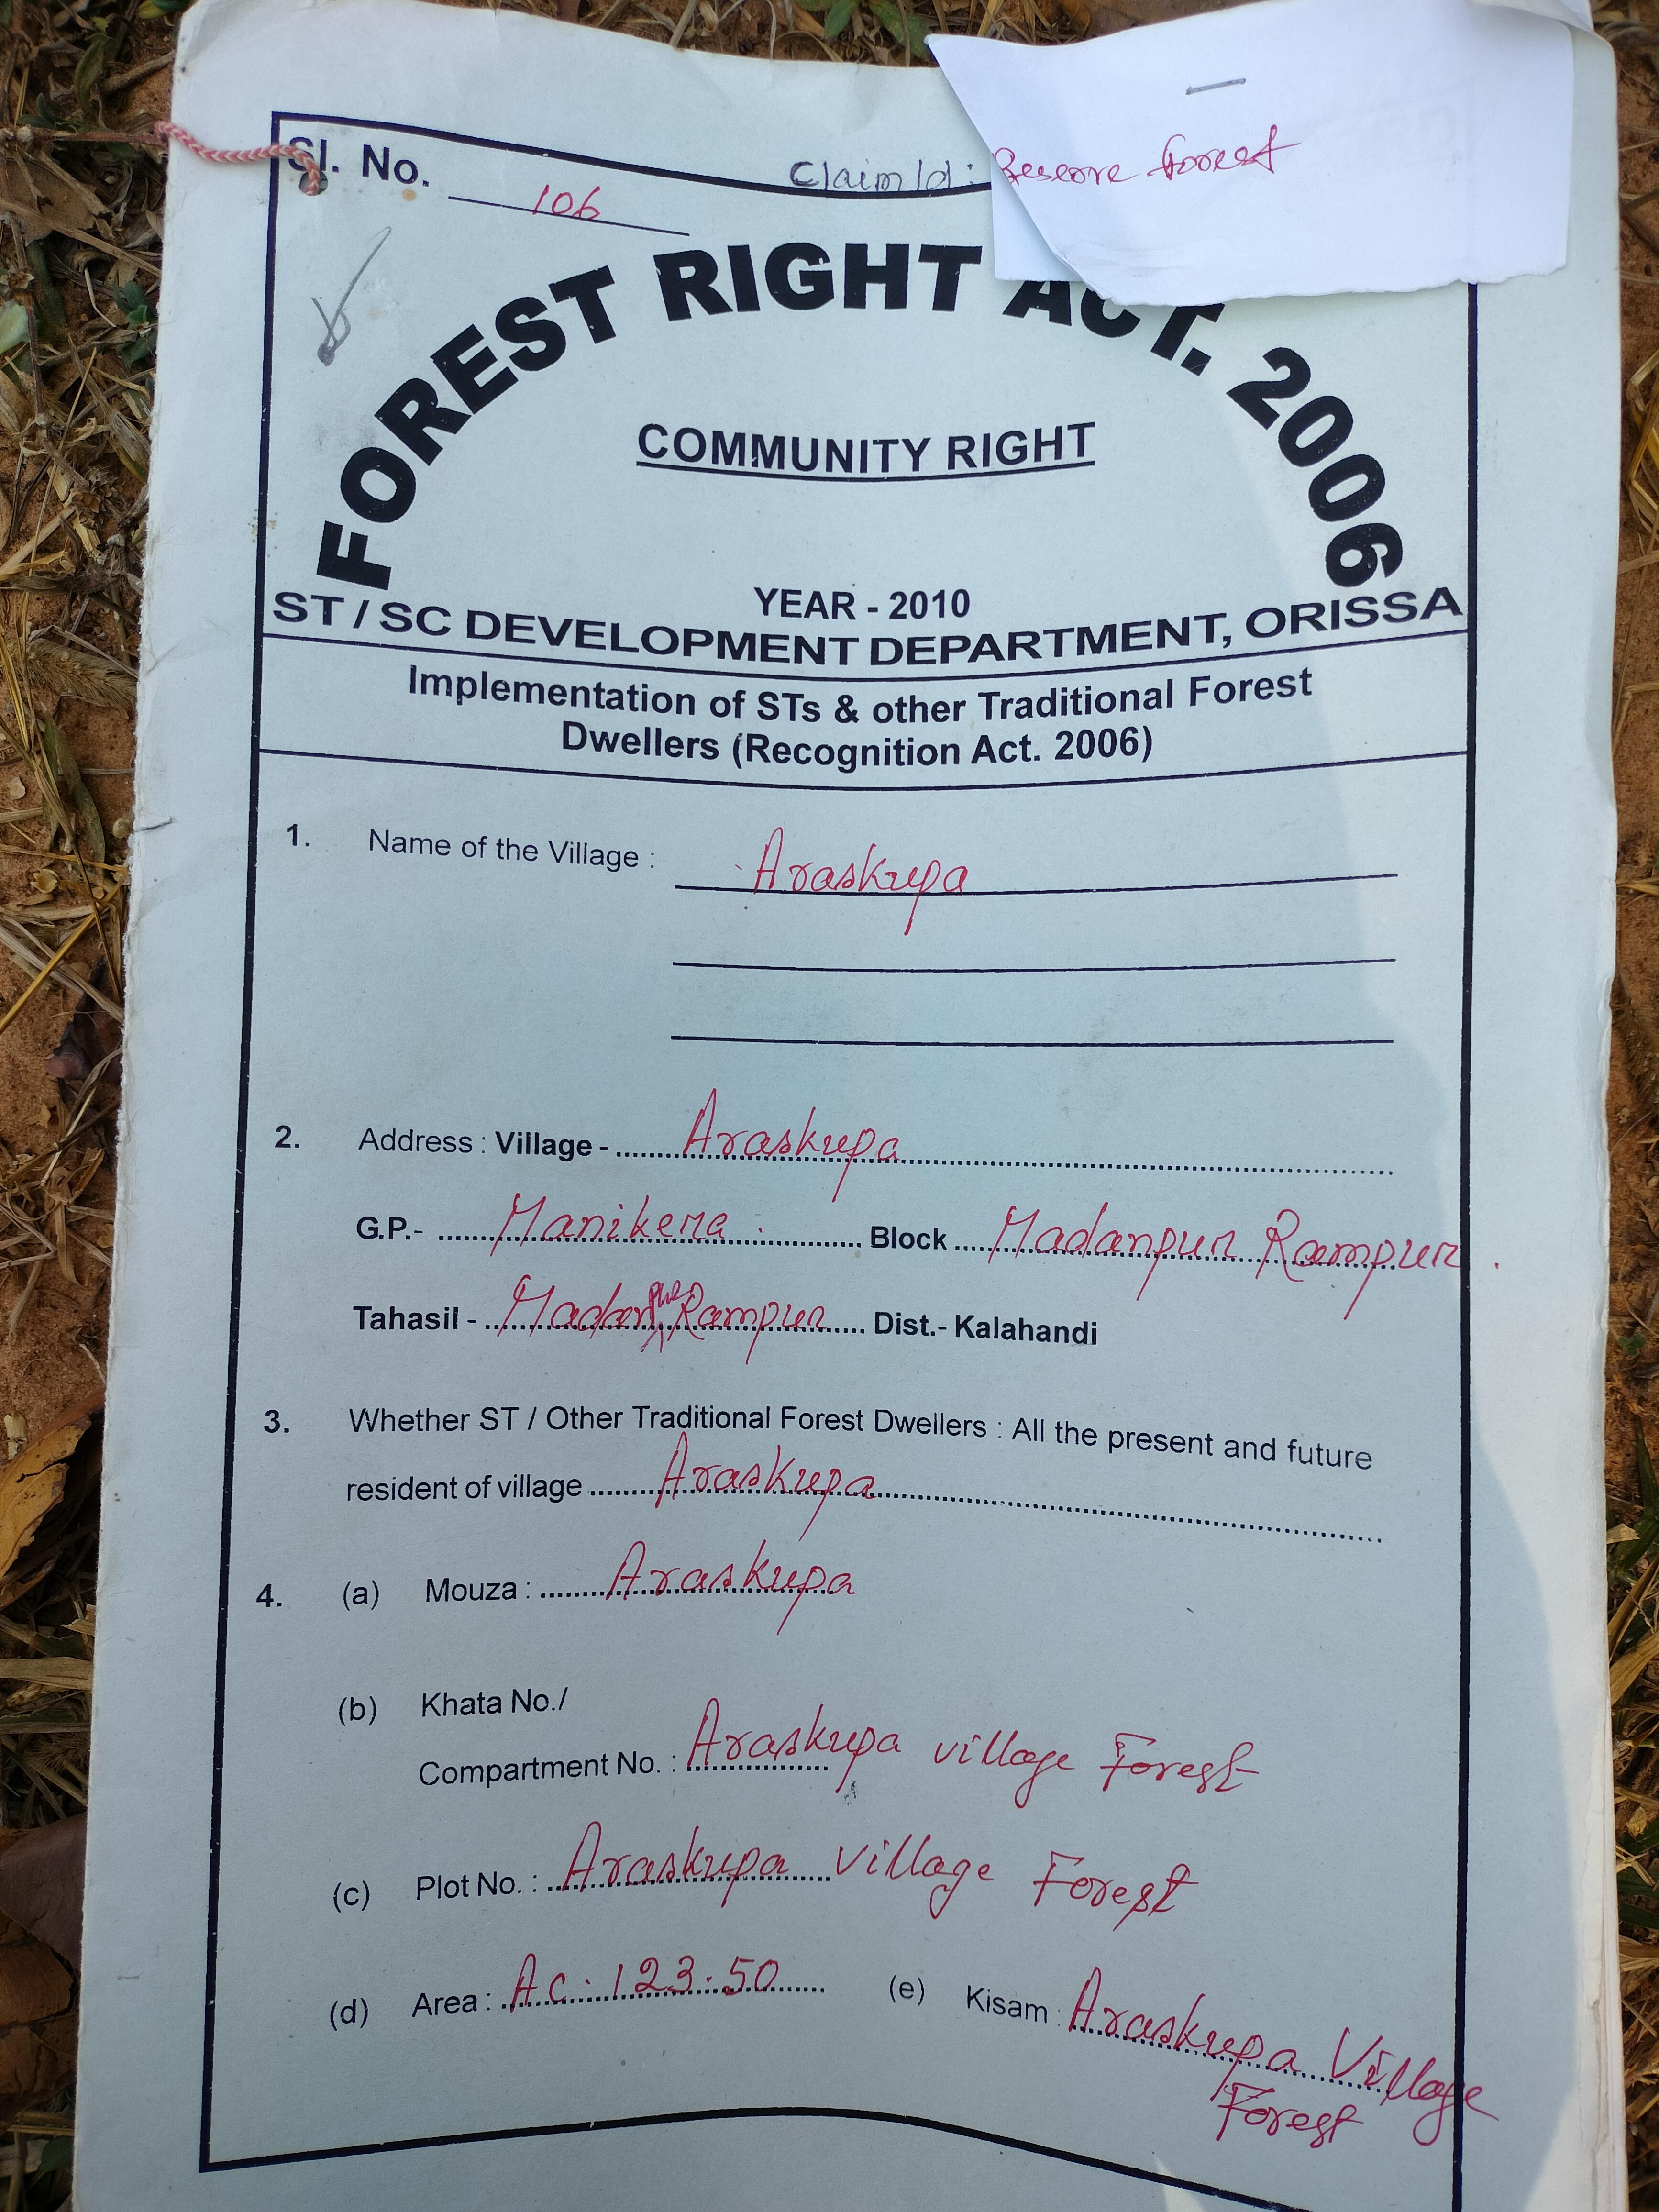 Sl. No. 106
Claim Id:
Reserve Forest
FOREST RIGHT ACT. 2006
COMMUNITY RIGHT
YEAR - 2010
ST / SC DEVELOPMENT DEPARTMENT, ORISSA
Implementation of STs & other Traditional Forest
Dwellers (Recognition Act. 2006)
1. Name of the Village : Araskupa
2. Address : Village - Araskupa
G.P.- Manikera Block Madanpur Rampur.
Tahasil - Madanpur Rampur Dist.- Kalahandi
3. Whether ST / Other Traditional Forest Dwellers : All the present and future
resident of village Araskupa
4. (a) Mouza : Araskupa
(b) Khata No./
Compartment No. : Araskupa village Forest
(c) Plot No. : Araskupa Village Forest
(d) Area : Ac. 123.50 (e) Kisam : Araskupa Village
Forest